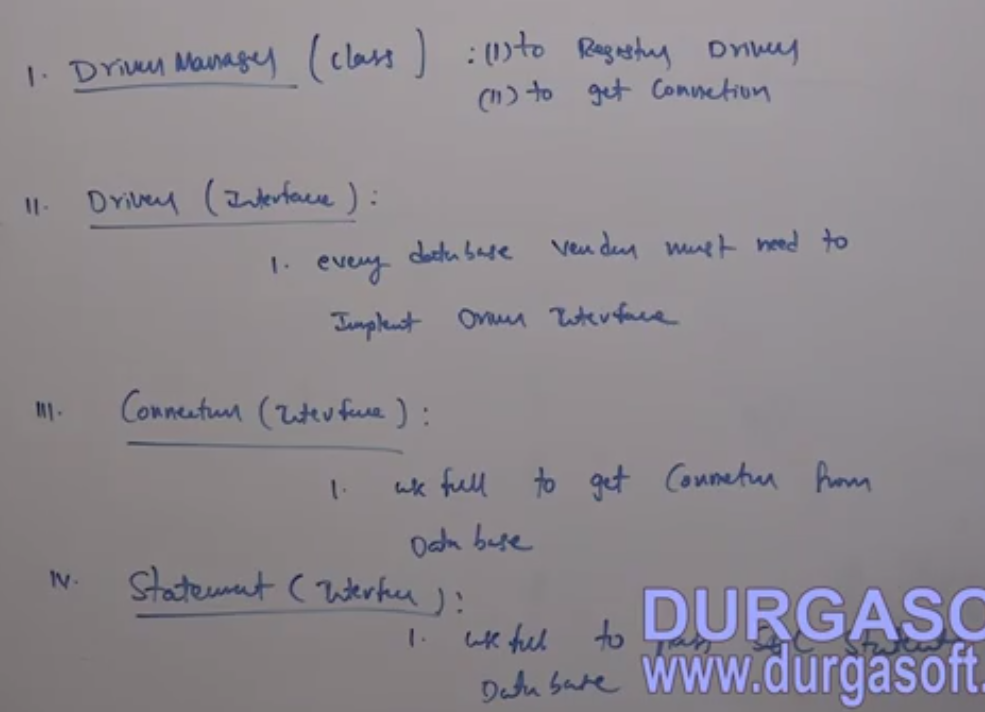 I. Driver Manager (class) : (I) to Register Driver
(II) to get Connection
II. Driver (Interface) :
1. every database vendor must need to
Implement Driver Interface
III. Connection (Interface) :
1. use full to get Connection from
Data base
IV. Statement (Interface) :
1. use full to pass SQL Statement
Data base
DURGASO
www.durgasoft.